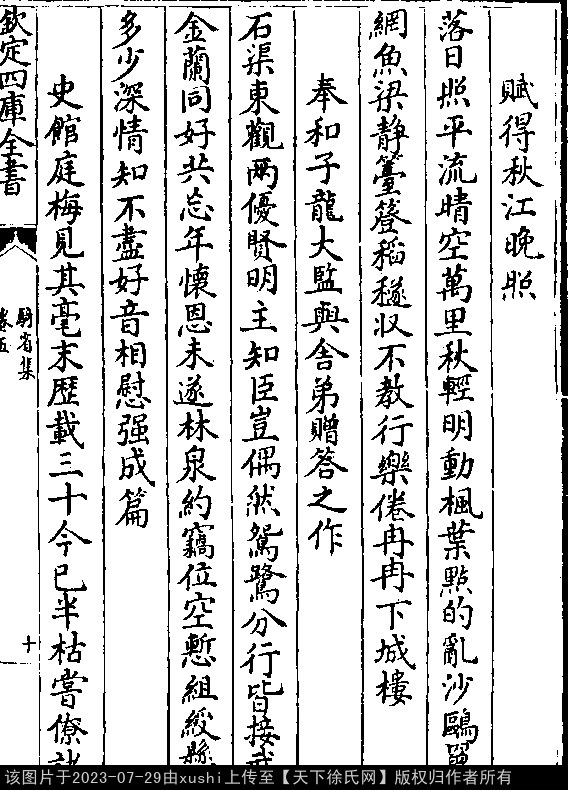 賦得秋江晚照
落日照平流晴空萬里秋輕明動楓葉點的亂沙鷗罾
網魚梁静簦稻穟収不教行樂倦冉冉下城樓
奉和子龍大監與舍弟贈答之作
石渠東觀兩優賢明主知臣豈偶然鴛鷺分行皆接武
金蘭同好共忘年懷恩未遂林泉約竊位空慙組綬縣
多少深情知不盡好音相慰强成篇
史館庭梅見其毫末歴載三十今已半枯嘗僚
欽定四庫全書
騎省集
卷五
十
该图片于2023-07-29由xushi上传至【天下徐氏网】版权归作者所有